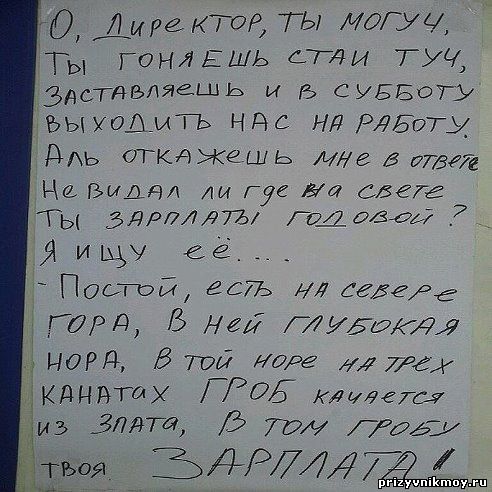 О, ДИРЕКТОР, ТЫ МОГУЧ,
ТЫ ГОНЯЕШЬ СТАИ ТУЧ,
ЗАСТАВЛЯЕШЬ И В СУББОТУ
ВЫХОДИТЬ НАС НА РАБОТУ.
АЛЬ ОТКАЖЕШЬ МНЕ В ОТВЕТЕ
НЕ ВИДАЛ ЛИ ГДЕ НА СВЕТЕ
ТЫ ЗАРПЛАТЫ ГОДОВОЙ?
Я ИЩУ ЕЁ....
- ПОСТОЙ, ЕСТЬ НА СЕВЕРЕ
ГОРА, В НЕЙ ГЛУБОКАЯ
НОРА, В ТОЙ НОРЕ НА ТРЁХ
КАНАТАХ ГРОБ КАЧАЕТСЯ
ИЗ ЗЛАТА, В ТОМ ГРОБУ
ТВОЯ ЗАРПЛАТА!
prizyvnikmoy.ru